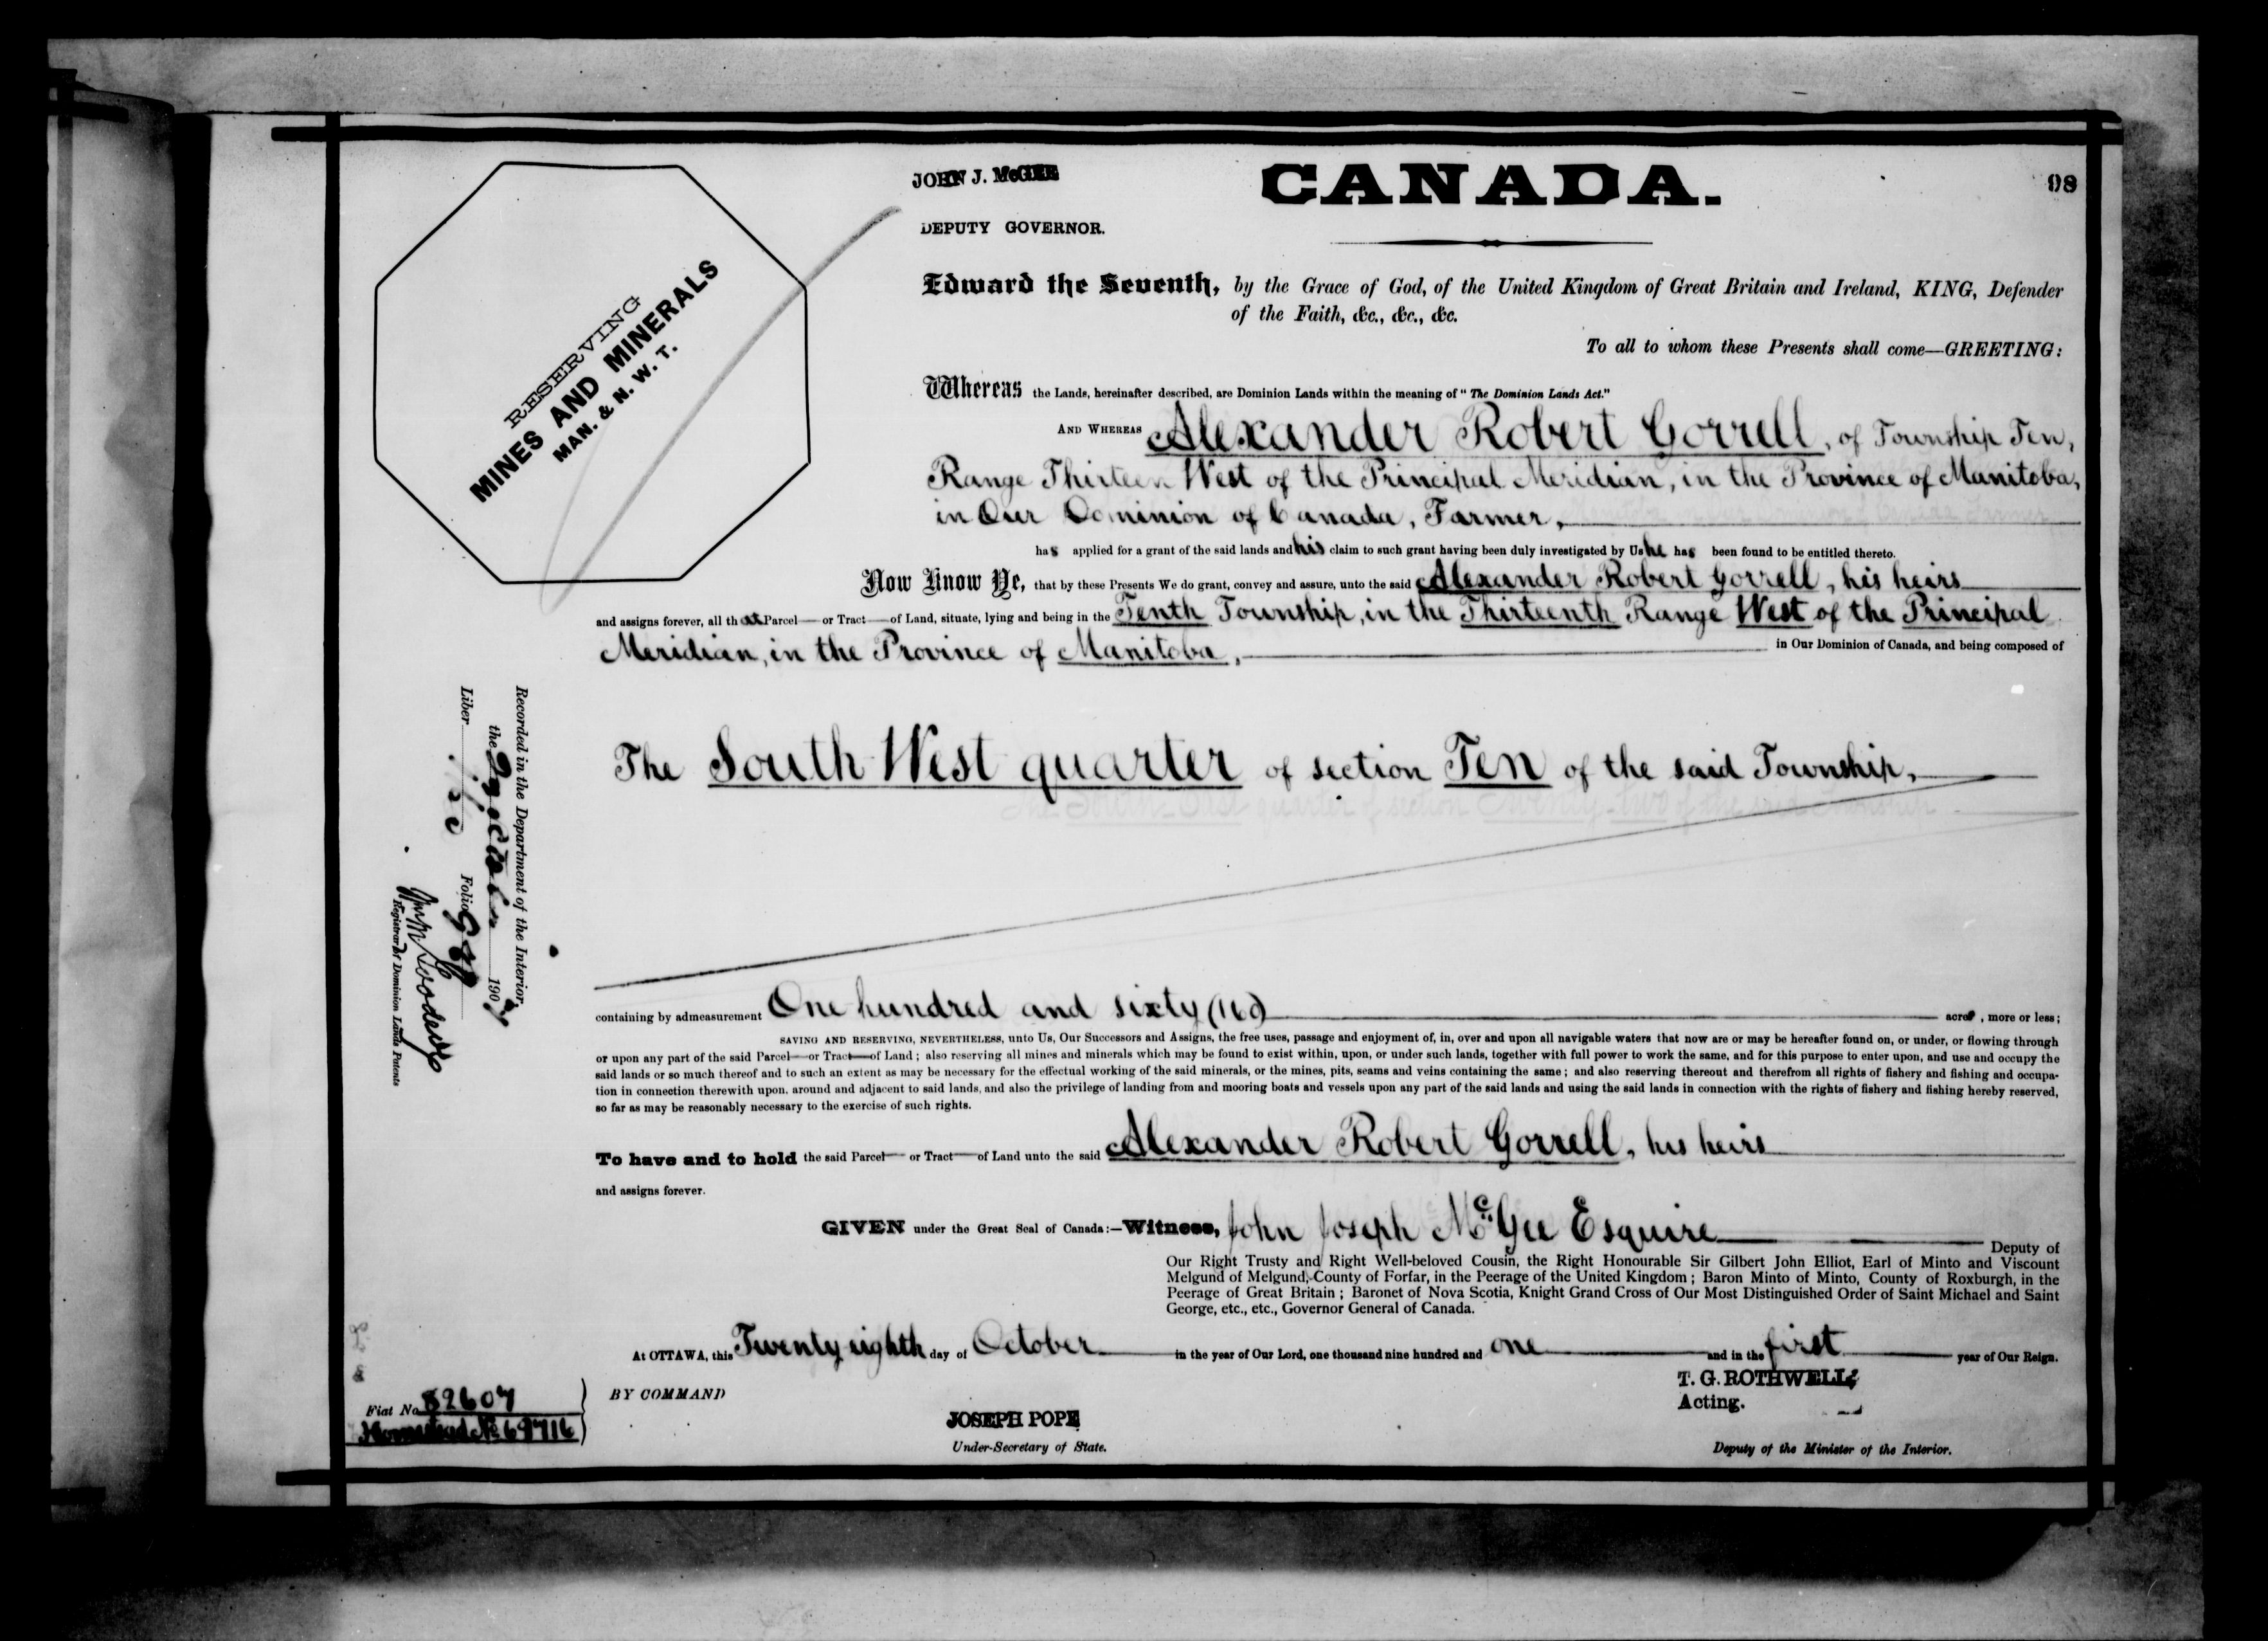 JOHN J. McGEE
DEPUTY GOVERNOR.
CANADA.
98
RESERVING
MINES AND MINERALS
MAN. & N. W. T.
Edward the Seventh, by the Grace of God, of the United Kingdom of Great Britain and Ireland, KING, Defender
of the Faith, &c., &c., &c.
To all to whom these Presents shall come—GREETING:
Whereas the Lands, hereinafter described, are Dominion Lands within the meaning of "The Dominion Lands Act."
AND WHEREAS Alexander Robert Gorrell, of Township Ten,
Range Thirteen West of the Principal Meridian, in the Province of Manitoba,
in Our Dominion of Canada, Farmer,
has applied for a grant of the said lands and his claim to such grant having been duly investigated by Us he has been found to be entitled thereto.
Now Know Ye, that by these Presents We do grant, convey and assure, unto the said Alexander Robert Gorrell, his heirs
and assigns forever, all that Parcel or Tract of Land, situate, lying and being in the Tenth Township, in the Thirteenth Range West of the Principal
Meridian, in the Province of Manitoba, in Our Dominion of Canada, and being composed of
The South West quarter of section Ten of the said Township,
Recorded in the Department of the Interior,
the 29 October 1901
Liber Folio 98
Registrar of Dominion Lands Patents
containing by admeasurement One hundred and sixty (160) acres, more or less;
SAVING AND RESERVING, NEVERTHELESS, unto Us, Our Successors and Assigns, the free uses, passage and enjoyment of, in, over and upon all navigable waters that now are or may be hereafter found on, or under, or flowing through
or upon any part of the said Parcel or Tract of Land; also reserving all mines and minerals which may be found to exist within, upon, or under such lands, together with full power to work the same, and for this purpose to enter upon, and use and occupy the
said lands or so much thereof and to such an extent as may be necessary for the effectual working of the said minerals, or the mines, pits, seams and veins containing the same; and also reserving thereout and therefrom all rights of fishery and fishing and occupa-
tion in connection therewith upon, around and adjacent to said lands, and also the privilege of landing from and mooring boats and vessels upon any part of the said lands and using the said lands in connection with the rights of fishery and fishing hereby reserved,
so far as may be reasonably necessary to the exercise of such rights.
To have and to hold the said Parcel or Tract of Land unto the said Alexander Robert Gorrell, his heirs
and assigns forever.
GIVEN under the Great Seal of Canada:—Witness, John Joseph McGee Esquire Deputy of
Our Right Trusty and Right Well-beloved Cousin, the Right Honourable Sir Gilbert John Elliot, Earl of Minto and Viscount
Melgund of Melgund, County of Forfar, in the Peerage of the United Kingdom; Baron Minto of Minto, County of Roxburgh, in the
Peerage of Great Britain; Baronet of Nova Scotia, Knight Grand Cross of Our Most Distinguished Order of Saint Michael and Saint
George, etc., etc., Governor General of Canada.
At OTTAWA, this Twenty eighth day of October in the year of Our Lord, one thousand nine hundred and one and in the first year of Our Reign.
Fiat No 82607
Homestead No 69716
BY COMMAND
JOSEPH POPE
Under-Secretary of State.
T. G. ROTHWELL,
Acting.
Deputy of the Minister of the Interior.